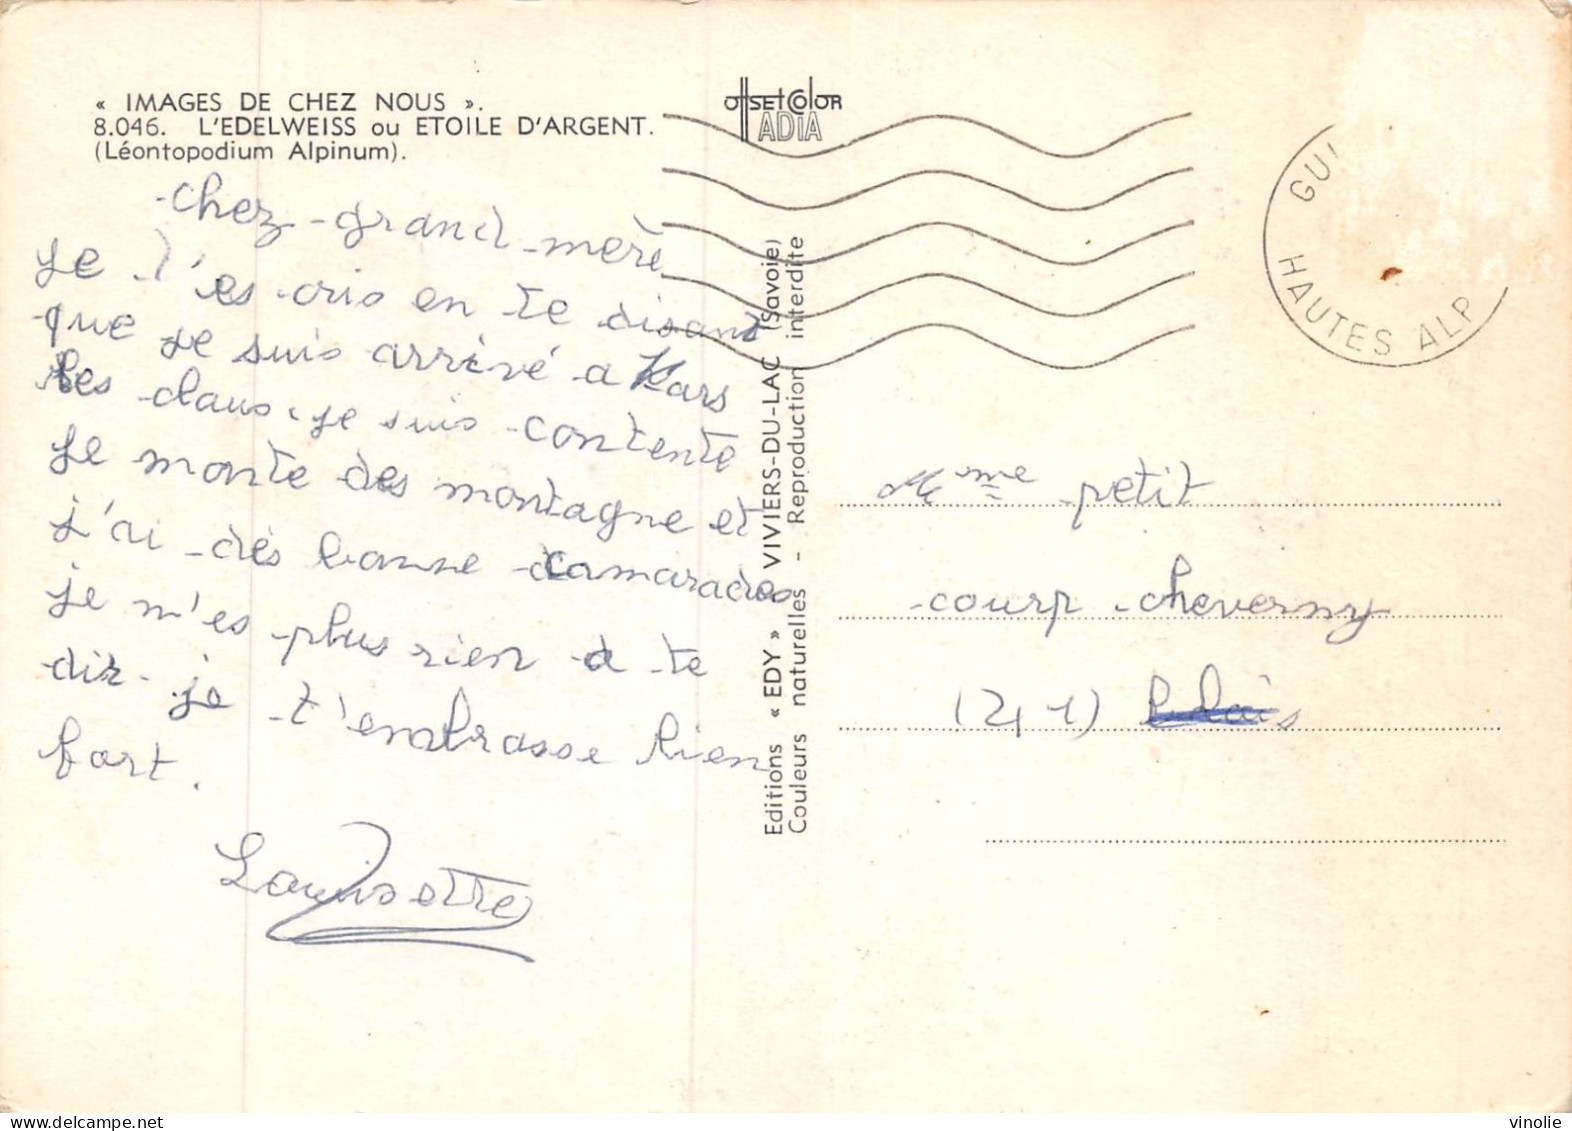 « IMAGES DE CHEZ NOUS ».
8.046. L'EDELWEISS ou ETOILE D'ARGENT.
(Léontopodium Alpinum).
chez grand mère
je t'es cris en te disant
que je suis arrivé a Kars
les claus. je suis contente
je monte des montagne et
j'ai dès bonne camarades
je m'es plus rien a te
dir. je t'embrasse bien
fort.
Louisette
OffSEt COlOR
ADIA
Editions « EDY » VIVIERS-DU-LAC (Savoie)
Couleurs naturelles - Reproduction interdite
GUI
HAUTES ALP
Mme petit
courp cheverny
(41)
vinolie